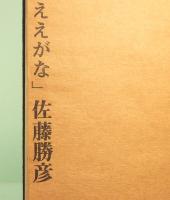 ええがな」佐藤勝彦